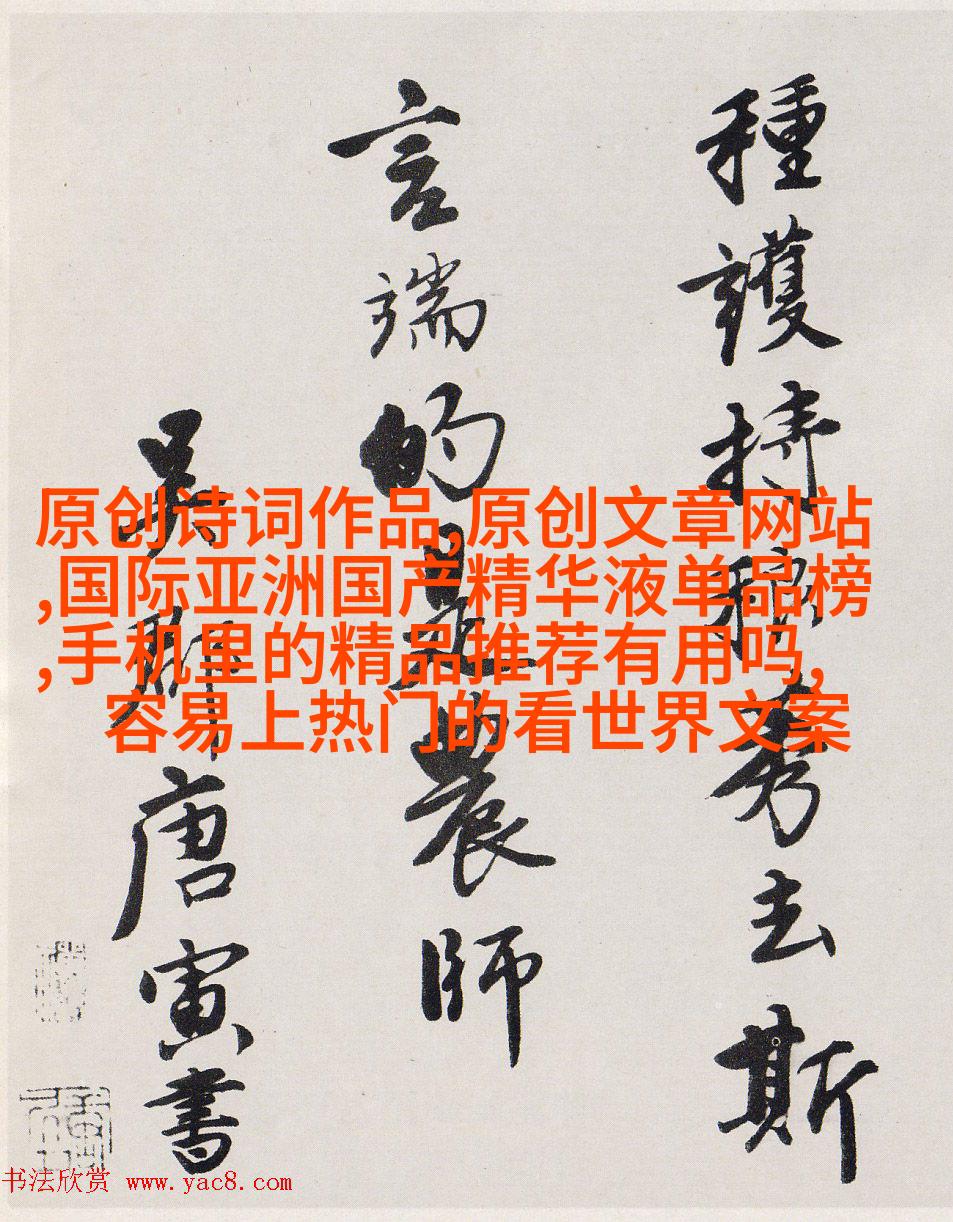 種護持穆秀去斯
言端的是農師
吴郡唐寅書
原创诗词作品,原创文章网站
,国际亚洲国产精华液单品榜
,手机里的精品推荐有用吗,
容易上热门的看世界文案
书法欣赏 www.yac8.com